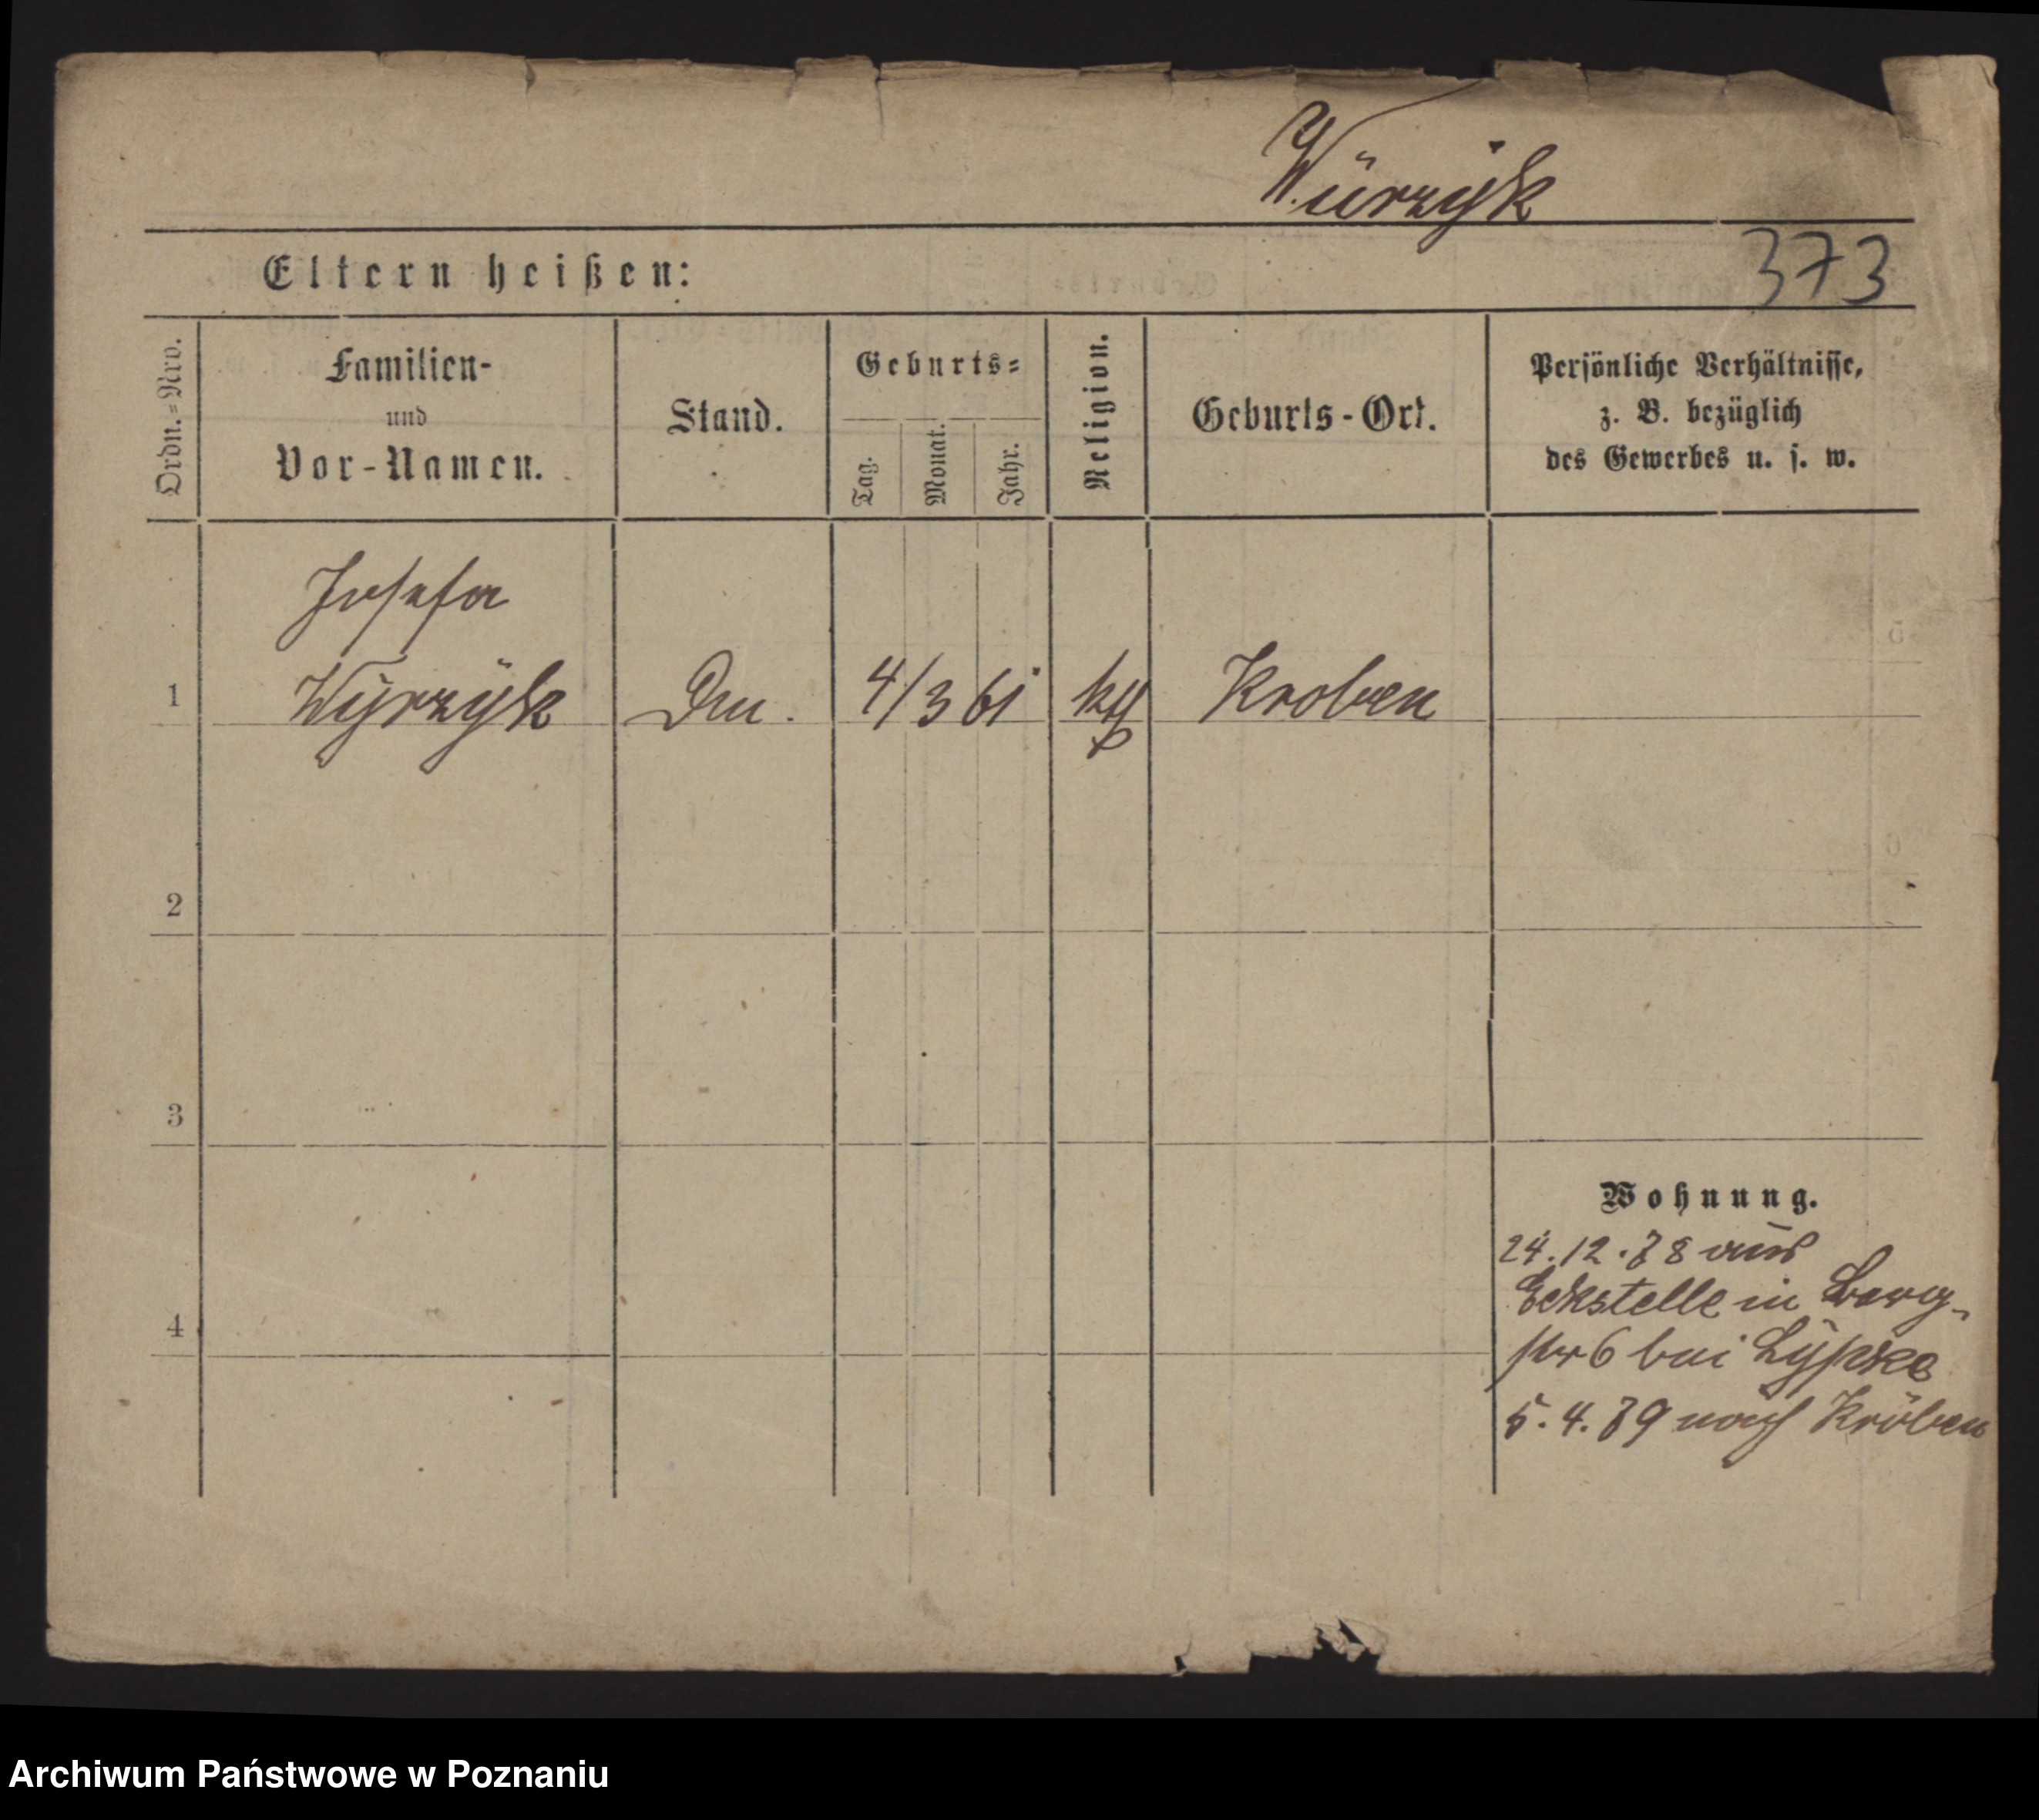 Würzyk
Eltern heißen:
373
Ordn.=Nro.
Familien-
und
Vor-Namen.
Stand.
Geburts=
Tag.
Monat.
Jahr.
Religion.
Geburts-Ort.
Persönliche Verhältnisse,
z. B. bezüglich
des Gewerbes u. s. w.
Josefa
1 Wyrzÿk Dm. 4/3 61 kth Kroben
2
3
4
Wohnung.
24.12.78 aus
Eckstelle in Berg-
str 6 bei
5.4.79 nach Kröben
Archiwum Państwowe w Poznaniu